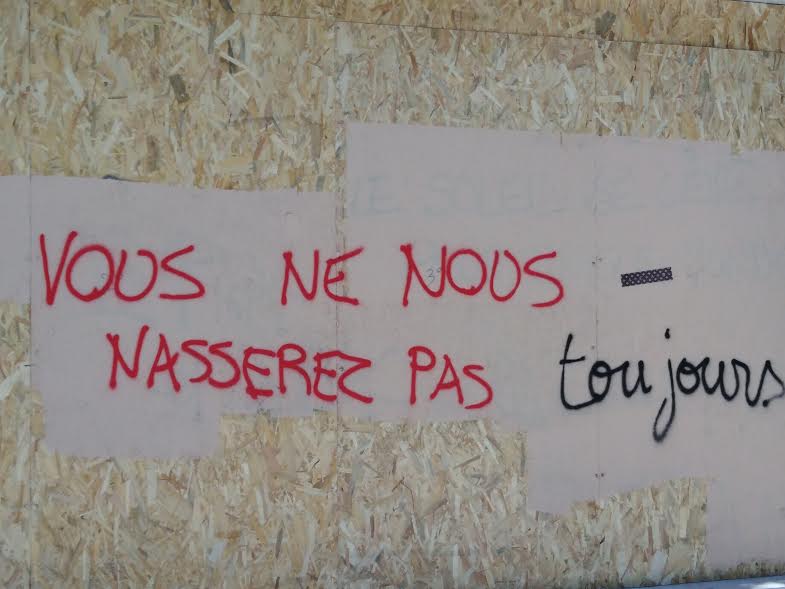 VOUS NE NOUS
NASSEREZ PAS toujours